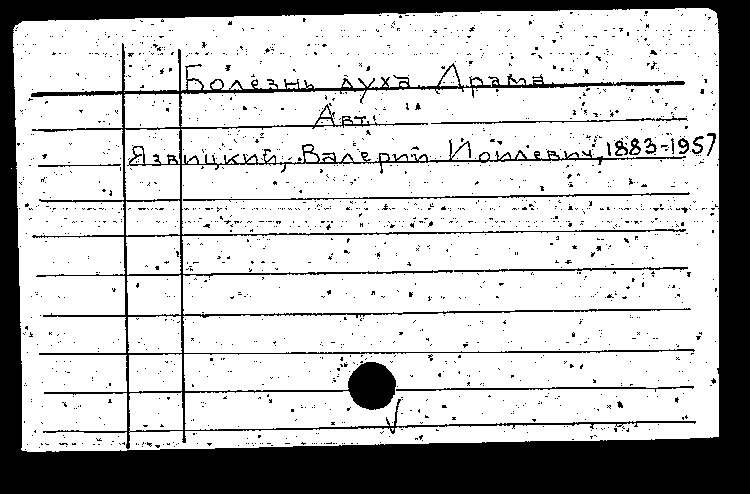 Болезнь духа. Драма
Авт.:
Язвицкий, Валерий Иоилевич, 1883-1957